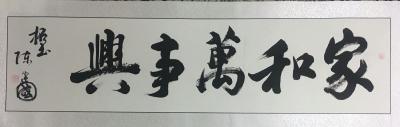 家和萬事興
陳